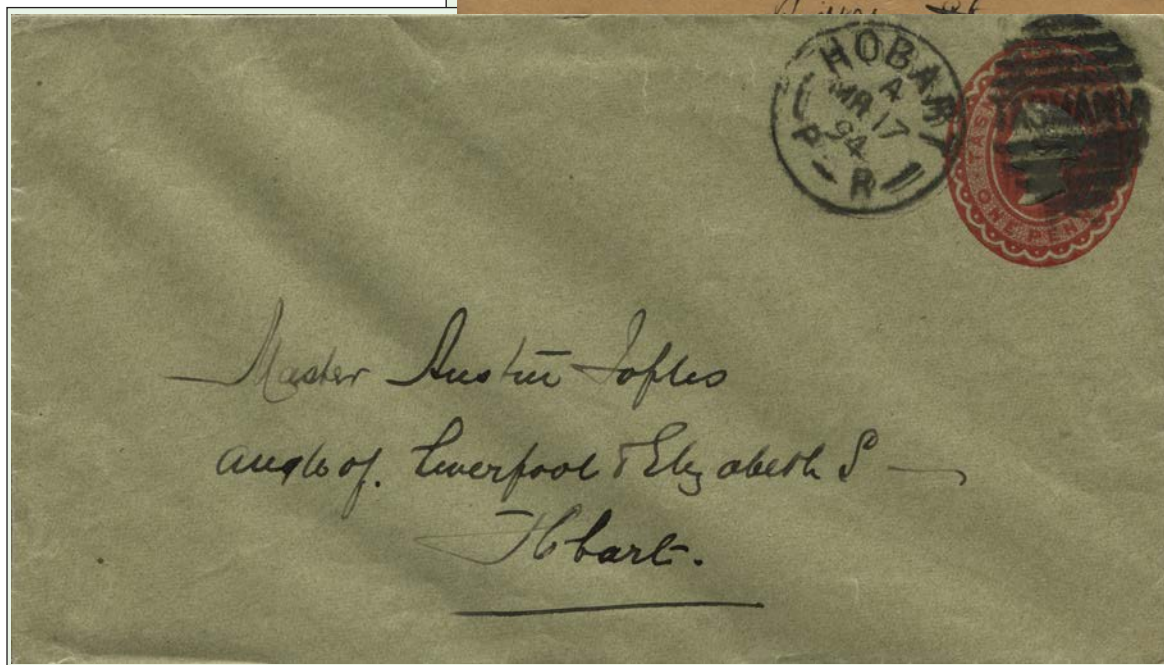 HOBART
A
MR 17
94
P R
TASMANIA
TAS
ONE PENN
Master Austin
angle of. Liverpool & Elizabeth S
Hobart.